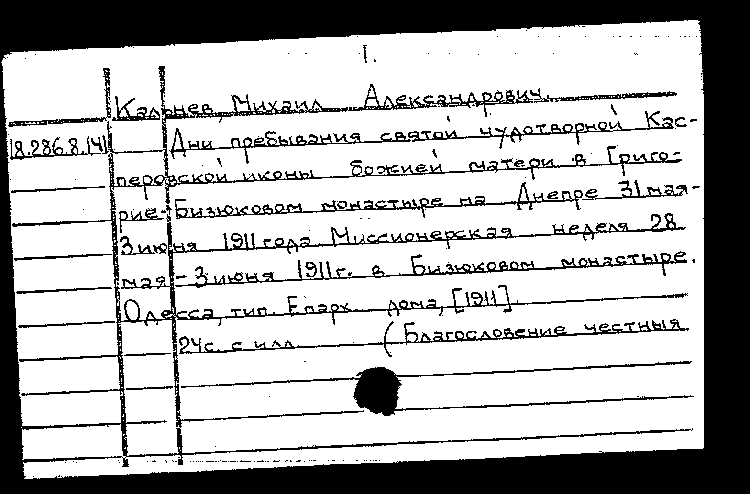 1.
Кальнев, Михаил Александрович.
18.286.8.141 Дни пребывания святой чудотворной Кас-
перовской иконы божией матери в Григо-
рие-Бизюковом монастыре на Днепре 31 мая-
3 июня 1911 года Миссионерская неделя 28
мая - 3 июня 1911 г. в Бизюковом монастыре.
Одесса, тип. Епарх. дома, [1911].
24с. с илл. (Благословение честныя